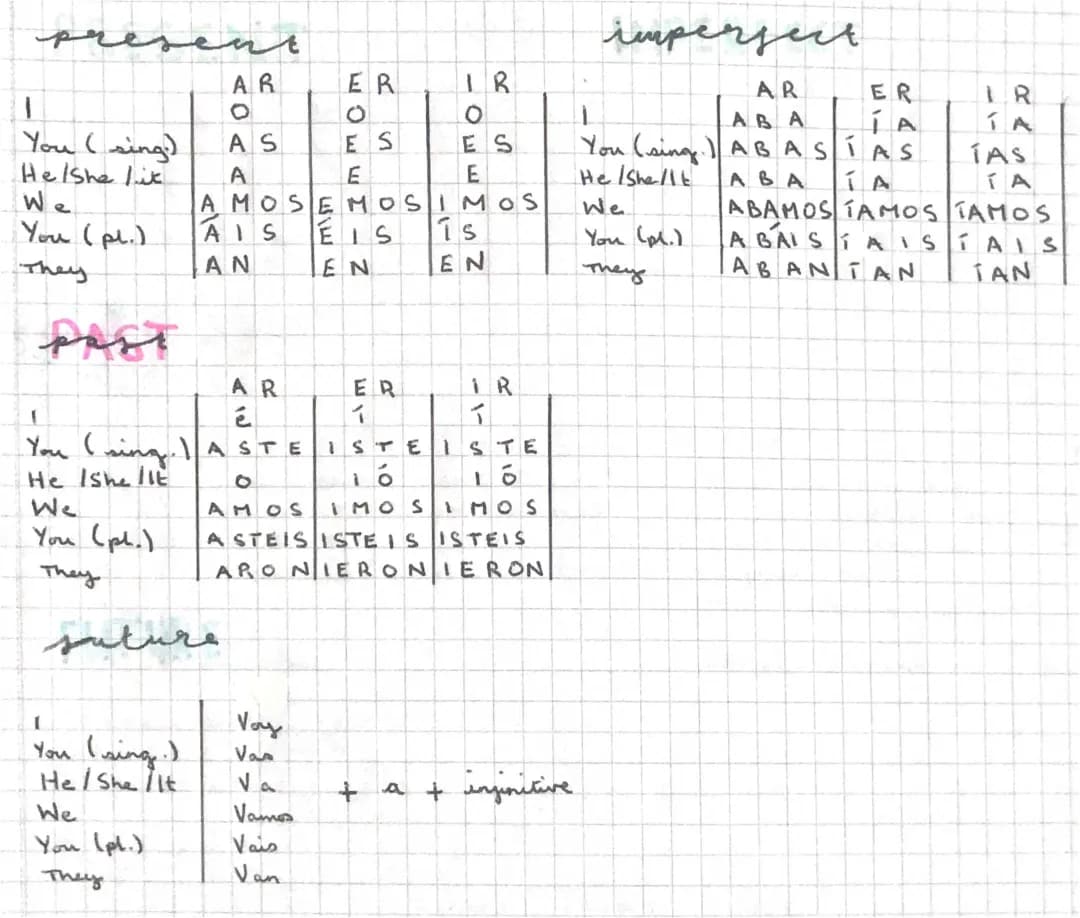 present
AR ER IR
I O O O
You (sing.) AS ES ES
He/She/it A E E
We AMOS EMOS IMOS
You (pl.) ÁIS ÉIS ÍS
They AN EN EN
imperfect
AR ER IR
I ABA ÍA ÍA
You (sing.) ABAS ÍAS ÍAS
He/She/It ABA ÍA ÍA
We ABAMOS ÍAMOS ÍAMOS
You (pl.) ABÁIS ÍAIS ÍAIS
They ABAN ÍAN ÍAN
PAST
past
AR ER IR
I é í í
You (sing.) ASTE ISTE ISTE
He/She/It O IÓ IÓ
We AMOS IMOS IMOS
You (pl.) ASTEIS ISTEIS ISTEIS
They ARON IERON IERON
FUTURE
future
I Voy
You (sing.) Vas
He/She/It Va + a + infinitive
We Vamos
You (pl.) Vais
They Van